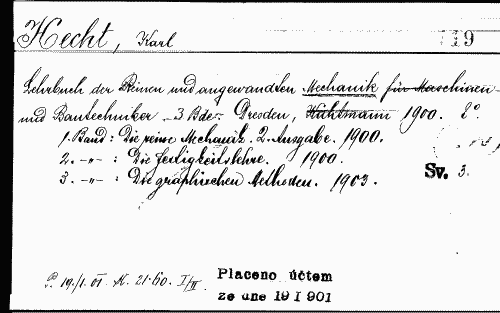 Hecht, Karl
119
Lehrbuch der Reinen und angewandten Mechanik für Maschinen-
und Bautechniker. 3 Bde. Dresden, Kühtmann 1900. 8°.
1. Band: Die reine Mechanik. 2. Ausgabe. 1900.
2. -〃- : Die Festigkeitslehre. 1900.
3. -〃- : Die graphischen Methoden. 1903.
Sv. 3.
P. 19./1. 01. K. 21·60. I/II.
Placeno účtem
ze dne 19 I 901